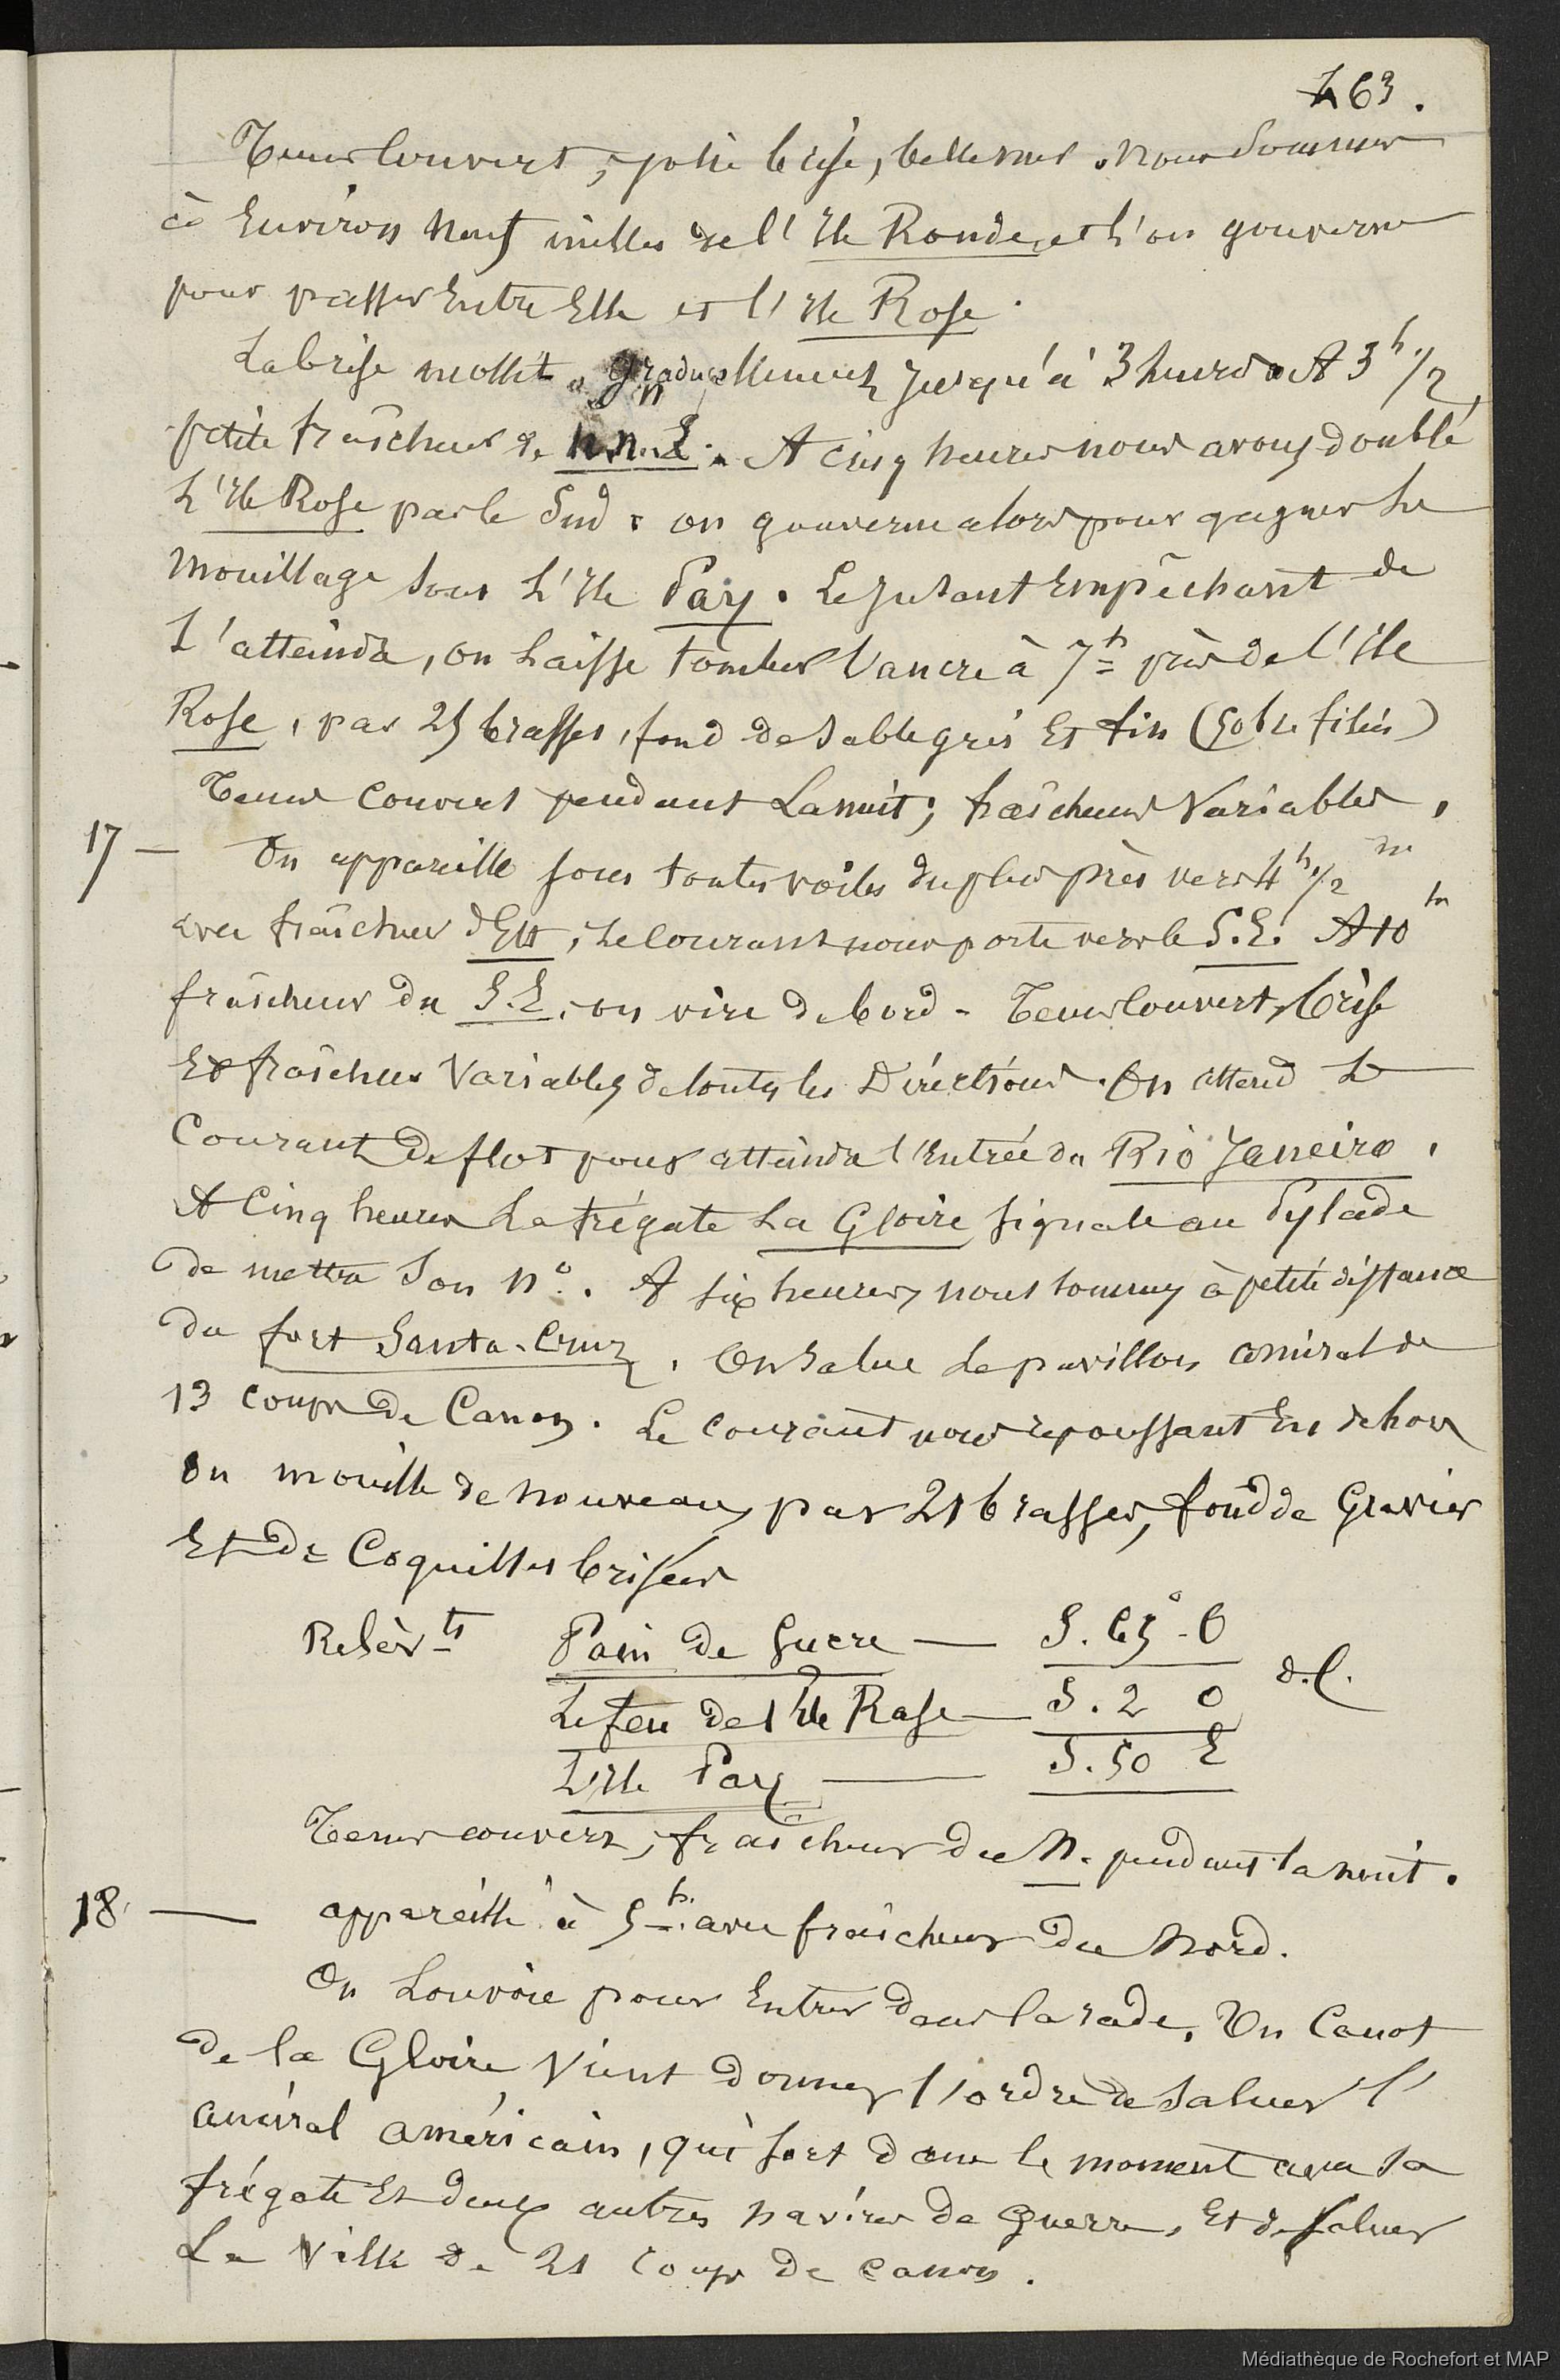 463.
Tems couvert, jolie brise, belle mer. Nous sommes
à Environ neuf milles de l'Ile Ronde, et l'on gouverne
pour passer Entre Elle et l'Ile Rose.
La brise mollit graduellement jusqu'à 3 heures. A 3h 1/2,
petite fraîcheur de N.N.E. A cinq heures nous avons doublé
L'Ile Rose par le Sud. on gouverne alors pour gagner Le
Mouillage sous L'Ile Pay. Le jusant Empêchant de
L'atteindre, on Laisse tomber l'ancre à 7h près de l'Ile
Rose, par 25 brasses, fond de sable gris Et fin (50 br. filées)
Tems couvert pendant La nuit; fraîcheurs Variables.
17 — On appareille sous toutes voiles du plus près vers 4h 1/2 m
avec fraîcheur d'Est, Le Courant nous porte vers le S.E. A 10h
fraîcheur du S.E, on vire de bord - Tems Couvert, brise
Et fraîcheur Variables de toutes les Directions. On attend Le
Courant De flot pour atteindre l'Entrée du Rio Janeiro.
A Cinq heures La frégate La Gloire signale au Pylade
de mettre Son N°. A six heures nous sommes à petite distance
du fort Santa-Cruz. On Salue Le pavillon amiral de
13 coups de Canon. Le courant nous repoussant En dehors
on mouille de nouveau par 21 brasses, fond de Gravier
Et de Coquilles brisées
Relèvts Pain de Sucre — S. 65° O
Le feu de l'Ile Rase — S. 2 O d.C.
L'Ile Pay — S. 50 E
Tems couvert, fraîcheur du N. pendant la nuit.
18 — appareillé à 5h. avec fraîcheur du Nord.
On Louvoie pour Entrer dans la rade. Un Canot
de la Gloire Vient donner l'ordre de Saluer l'
amiral américain, qui sort dans le moment avec sa
frégate Et deux autres navires de guerre, Et de saluer
La Ville de 21 Coups de canon.
Médiathèque de Rochefort et MAP